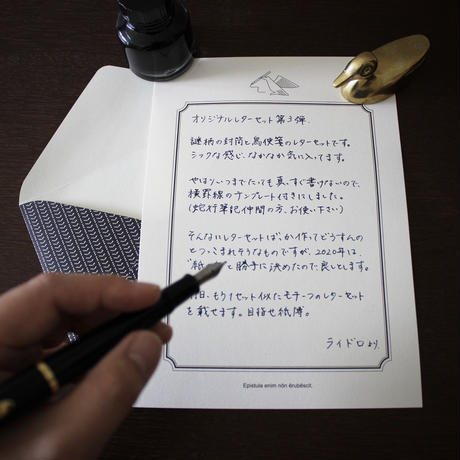 オリジナルレターセット第3弾.
謎柄の封筒と鳥便箋のレターセットです。
シックな感じ、なかなか気に入ってます。
やはりいつまでたっても真っすぐ書けないので、
横罫線のテンプレート付きにしました。
(蛇行筆記仲間の方、お使い下さい)
そんなにレターセットばっか作ってどうすんの
とつっこまれそうなものですが、2020年は、
"紙 と勝手に決めたので、良しとします。
日、もう1セット似たモチーフのレターセット
を載せます。目指せ紙簿。
ライドロより.
Epistula enim nōn ērubēscit.